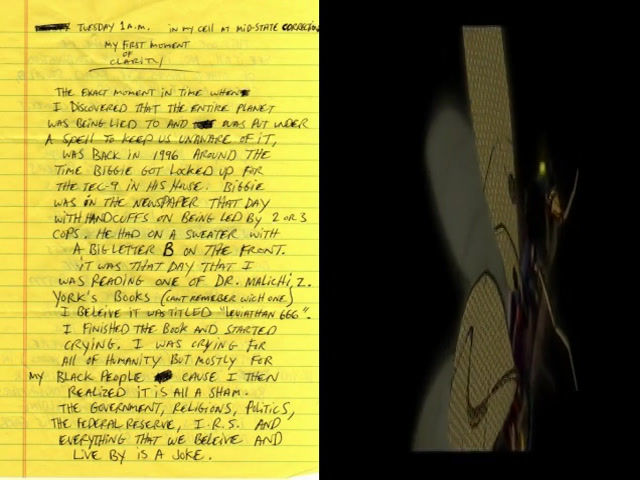 TUESDAY 1 A.M. IN MY CELL AT MID-STATE CORRECTION
MY FIRST MOMENT
OF
CLARITY
THE EXACT MOMENT IN TIME WHEN
I DISCOVERED THAT THE ENTIRE PLANET
WAS BEING LIED TO AND WAS PUT UNDER
A SPELL TO KEEP US UNAWARE OF IT,
WAS BACK IN 1996 AROUND THE
TIME BIGGIE GOT LOCKED UP FOR
THE TEC-9 IN HIS HOUSE. BIGGIE
WAS IN THE NEWSPAPER THAT DAY
WITH HANDCUFFS ON BEING LED BY 2 OR 3
COPS. HE HAD ON A SWEATER WITH
A BIG LETTER B ON THE FRONT.
IT WAS THAT DAY THAT I
WAS READING ONE OF DR. MALICHI Z.
YORK'S BOOKS (CANT REMEBER WICH ONE)
I BELEIVE IT WAS TITLED "LEVIATHAN 666".
I FINISHED THE BOOK AND STARTED
CRYING. I WAS CRYING FOR
ALL OF HUMANITY BUT MOSTLY FOR
MY BLACK PEOPLE CAUSE I THEN
REALIZED IT IS ALL A SHAM.
THE GOVERNMENT, RELIGIONS, POLITICS,
THE FEDERAL RESERVE, I.R.S. AND
EVERYTHING THAT WE BELEIVE AND
LIVE BY IS A JOKE.